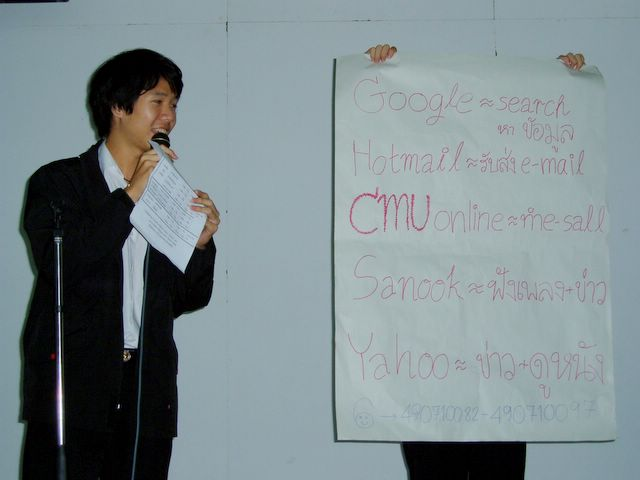 Google ≈ search
หา ข้อมูล
Hotmail ≈ รับส่ง e-mail
CMU online ≈ ทำe-sall
Sanook ≈ ฟังเพลง+ข่าว
Yahoo ≈ ข่าว+ดูหนัง
→ 490710082-490710097